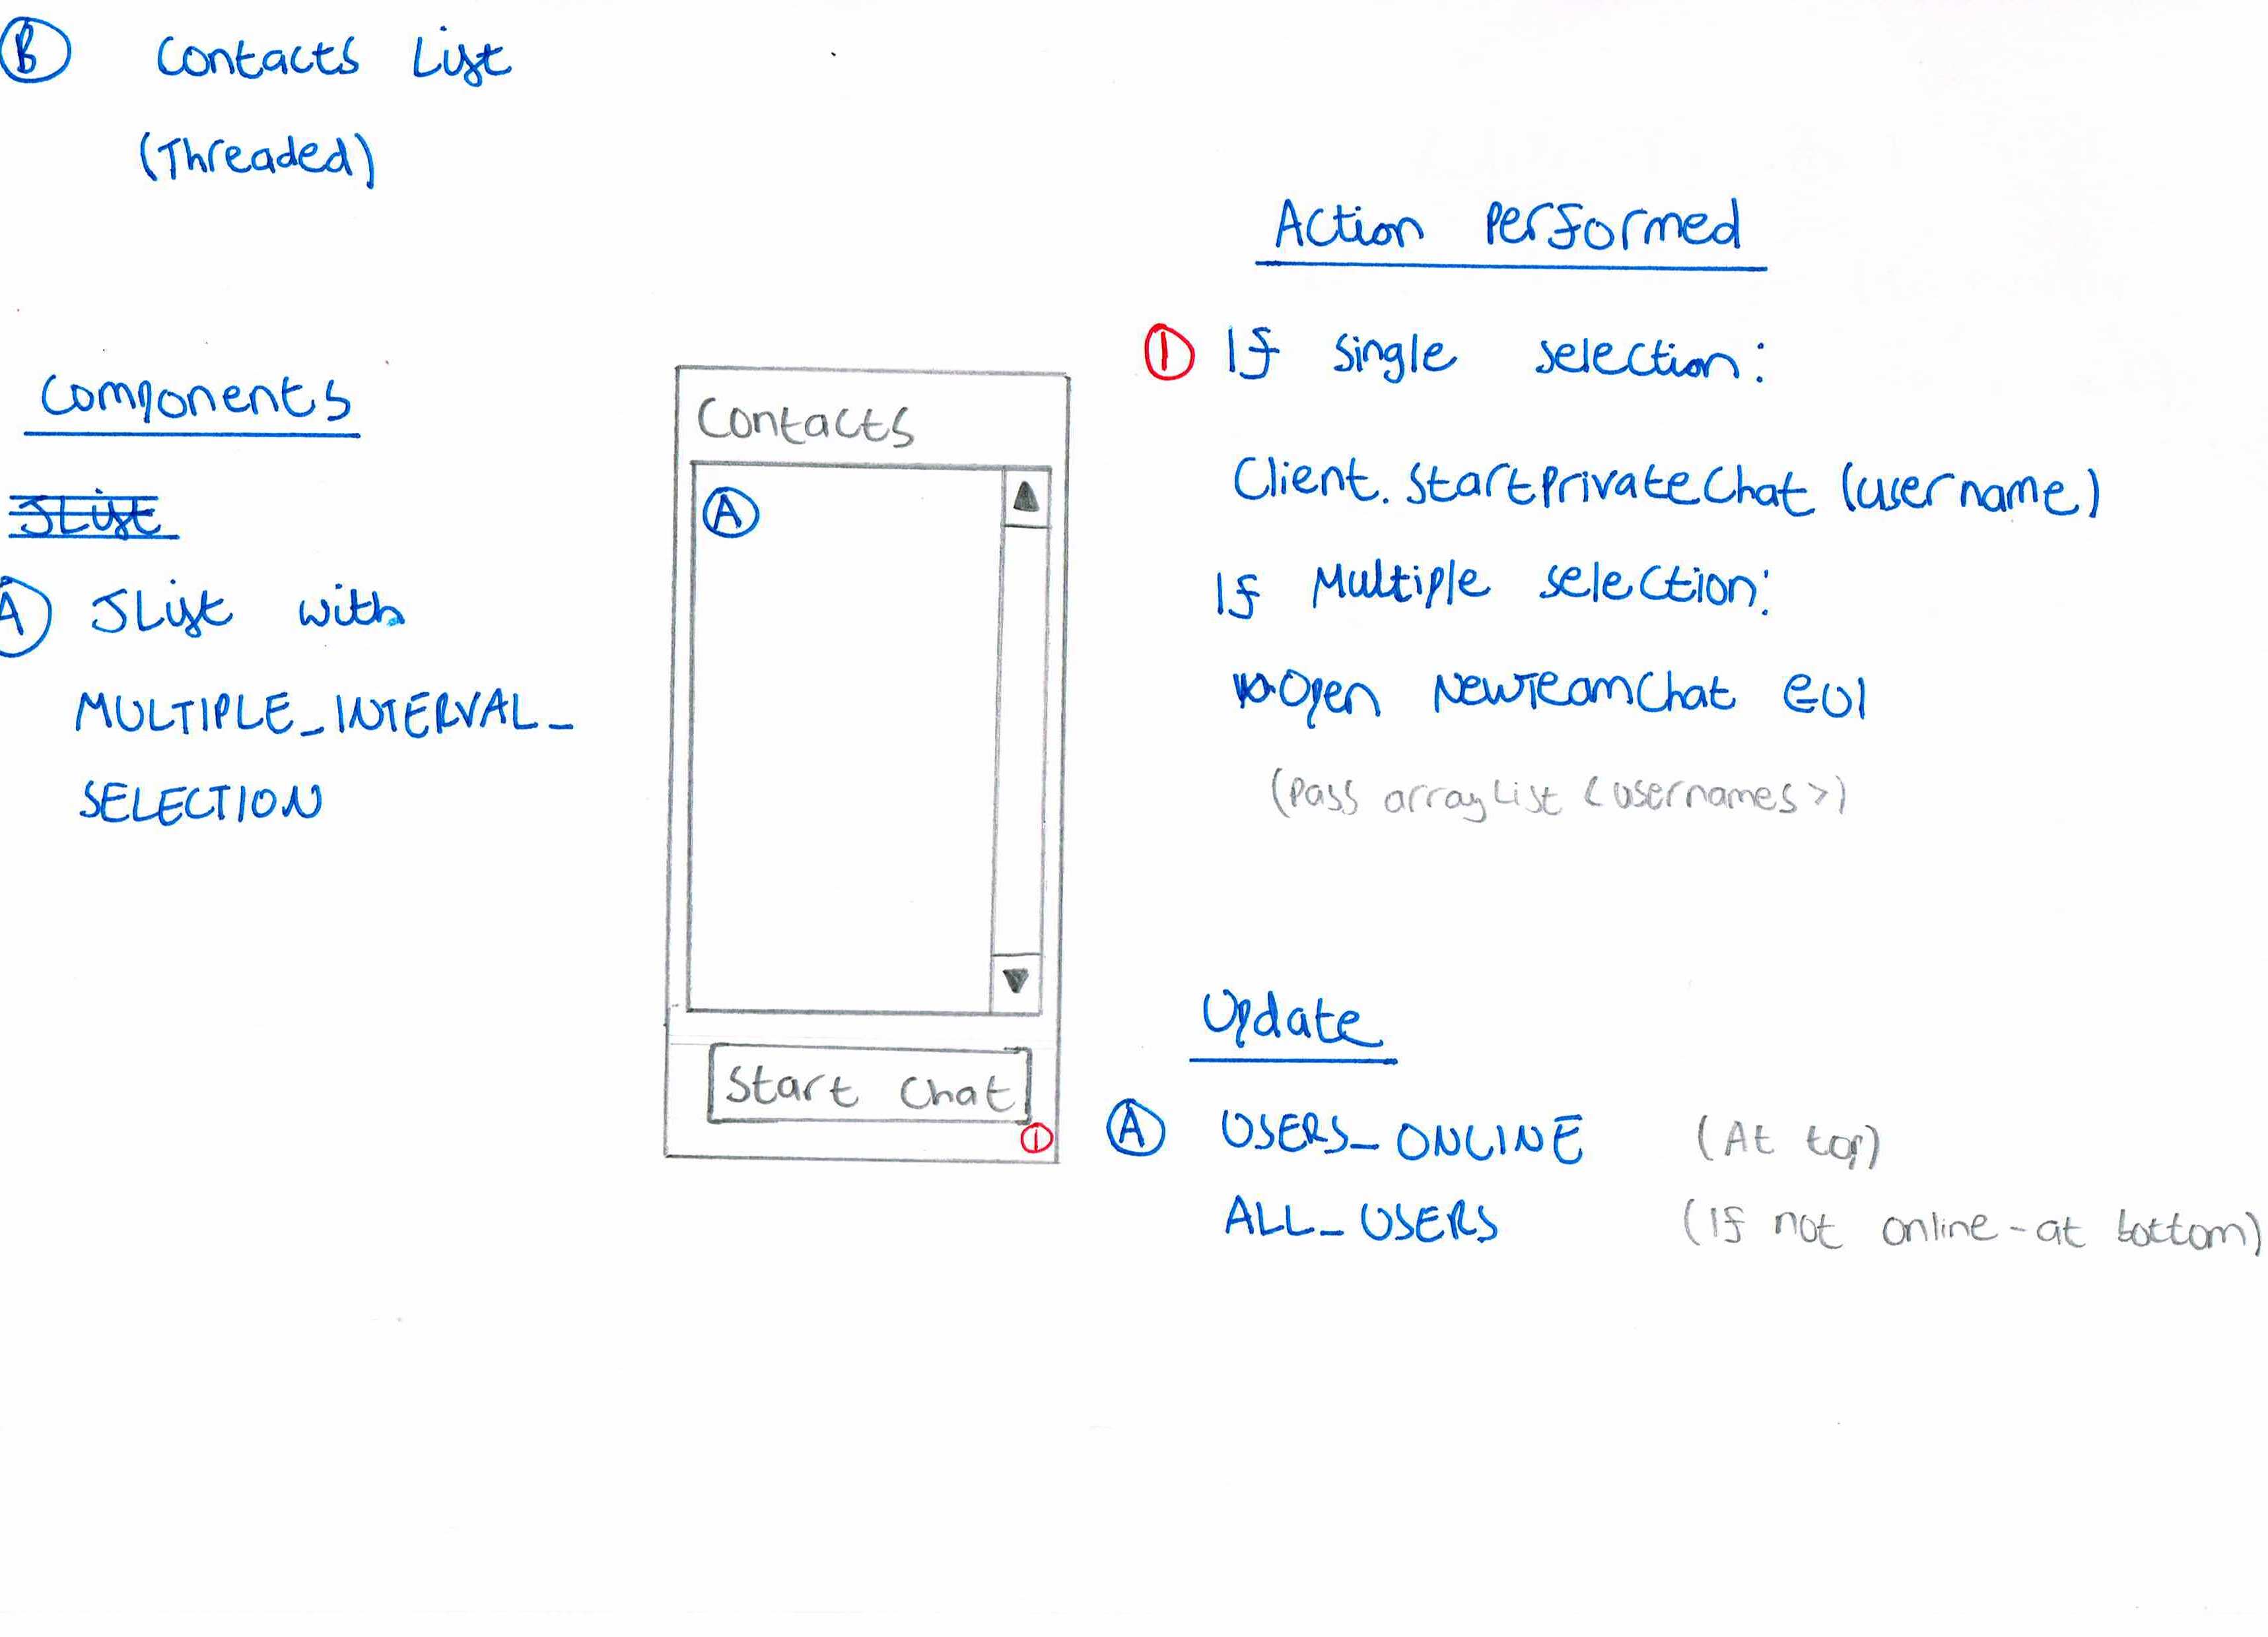 B Contacts List
(Threaded)
Components
JList
A JList with
MULTIPLE_INTERVAL_
SELECTION
Contacts
A
Start Chat
1
Action Performed
1 If single selection:
Client.StartPrivateChat (username)
If Multiple selection:
Open NewTeamChat GUI
(Pass arrayList <usernames>)
Update
A USERS_ONLINE (At top)
ALL_USERS (If not online - at bottom)